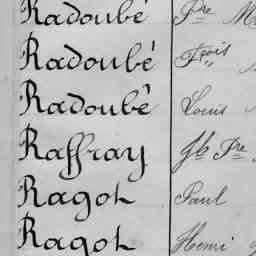 Radoubé Pre M
Radoubé Frois
Radoubé Louis
Raffray Jh Fre
Ragot Paul
Ragot Henri